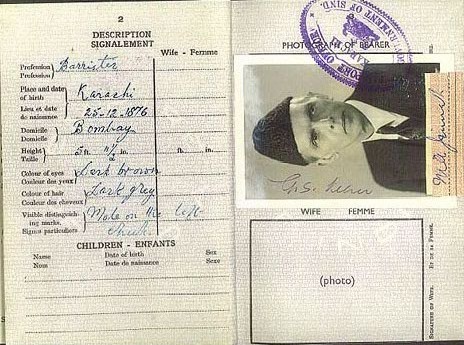 2
DESCRIPTION
SIGNALEMENT
Wife - Femme
Profession
Profession
Barrister
Place and date
of birth
Karachi
Lieu et date
de naissance
25-12-1876
Domicile
Domicile
Bombay
Height
Taille
5 ft. 11 1/2 in. ft. in.
Colour of eyes
Couleur des yeux
Dark brown
Colour of hair
Couleur des cheveux
Dark grey
Visible distinguish-
ing marks.
Signes particuliers
Mole on the left
cheek
CHILDREN - ENFANTS
Name Date of birth Sex
Nom Date de naissance Sexe
PHOTOGRAPH OF BEARER
GOVERNMENT OF SIND.
PASSPORT OFFICE
KARACHI
WIFE FEMME
(photo)
SIGNATURE OF WIFE. ET DE SA FEMME.